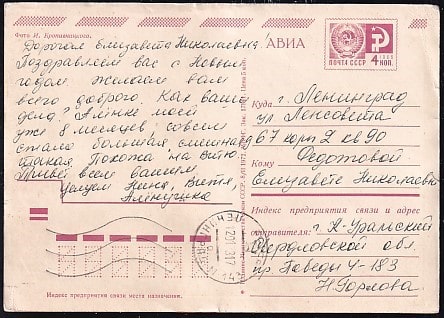 Фото И. Кропивницкого.
АВИА
ПОЧТА СССР
4 КОП.
Дорогая Елизавета Николаевна!
Поздравляем вас с Новым
годом желаем вам
всего доброго. Как ваши
дела? Аленке моей
уже 8 месяцев, совсем
стала большая, смешная
такая. Похожа на Витю.
Привет всем вашим
Целуем Неня, Витя,
Аленушка
Куда г. Ленинград
ул Ленсовета
67 корп 2 кв 90
Кому Федотовой
Елизавете Николаевне
Индекс предприятия связи и адрес
отправителя: г. К-Уральский
Свердловской обл.
пр Победы 4-183
Н. Горлова
Индекс предприятия связи места назначения.